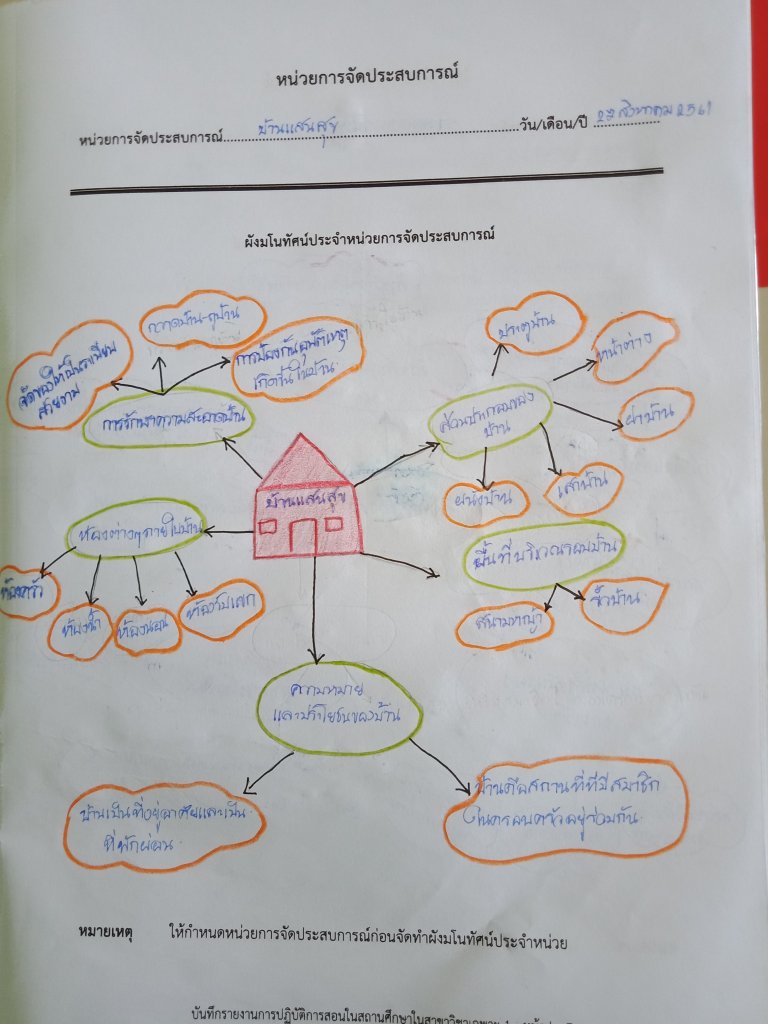 หน่วยการจัดประสบการณ์
หน่วยการจัดประสบการณ์ บ้านแสนสุข วัน/เดือน/ปี สิงหาคม 2561
ผังมโนทัศน์ประจำหน่วยการจัดประสบการณ์
กวาดบ้าน-ถูบ้าน
จัดของให้เป็นระเบียบ
สวยงาม
การป้องกันอุบัติเหตุ
เกิดขึ้นในบ้าน
การรักษาความสะอาดบ้าน
ประตูบ้าน
หน้าต่าง
ส่วนประกอบของ
บ้าน
ฝาบ้าน
ผนังบ้าน
เสาบ้าน
บ้านแสนสุข
ห้องต่างๆภายในบ้าน
ห้องครัว
ห้องน้ำ
ห้องนอน
ห้องรับแขก
พื้นที่บริเวณรอบบ้าน
สนามหญ้า
รั้วบ้าน
ความหมาย
และประโยชน์ของบ้าน
บ้านเป็นที่อยู่อาศัยและเป็น
ที่พักผ่อน
บ้านคือสถานที่ที่มีสมาชิก
ในครอบครัวอยู่ร่วมกัน
หมายเหตุ ให้กำหนดหน่วยการจัดประสบการณ์ก่อนจัดทำผังมโนทัศน์ประจำหน่วย
บันทึกรายงานการปฏิบัติการสอนในสถานศึกษาในสาขาวิชาเฉพาะ